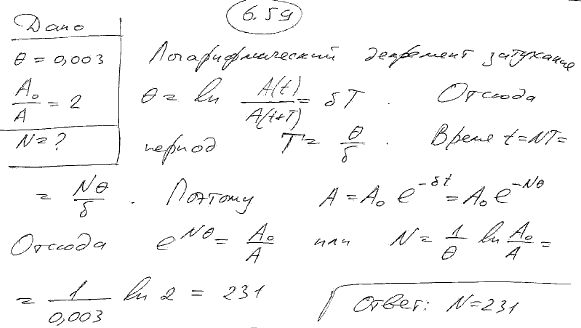 6.59
Дано
θ = 0,003
A₀/A = 2
N = ?
Логарифмический декремент затухание
θ = ln A(t)/A(t+T) = δT. Отсюда
период T = θ/δ. Время t = NT =
= Nθ/δ. Поэтому A = A₀ e^(-δt) = A₀ e^(-Nθ)
Отсюда e^(Nθ) = A₀/A или N = 1/θ ln A₀/A =
= 1/0,003 ln 2 = 231
Ответ: N = 231